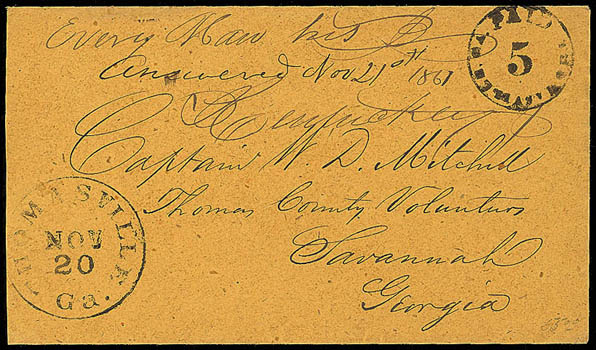 Every Man his
Answered Nov 21st/1861
PAID
5
Kentuckey
Captain W. D. Mitchell
Thomas County Volunteers
Savannah
Georgia
THOMASVILLE
NOV
20
Ga.